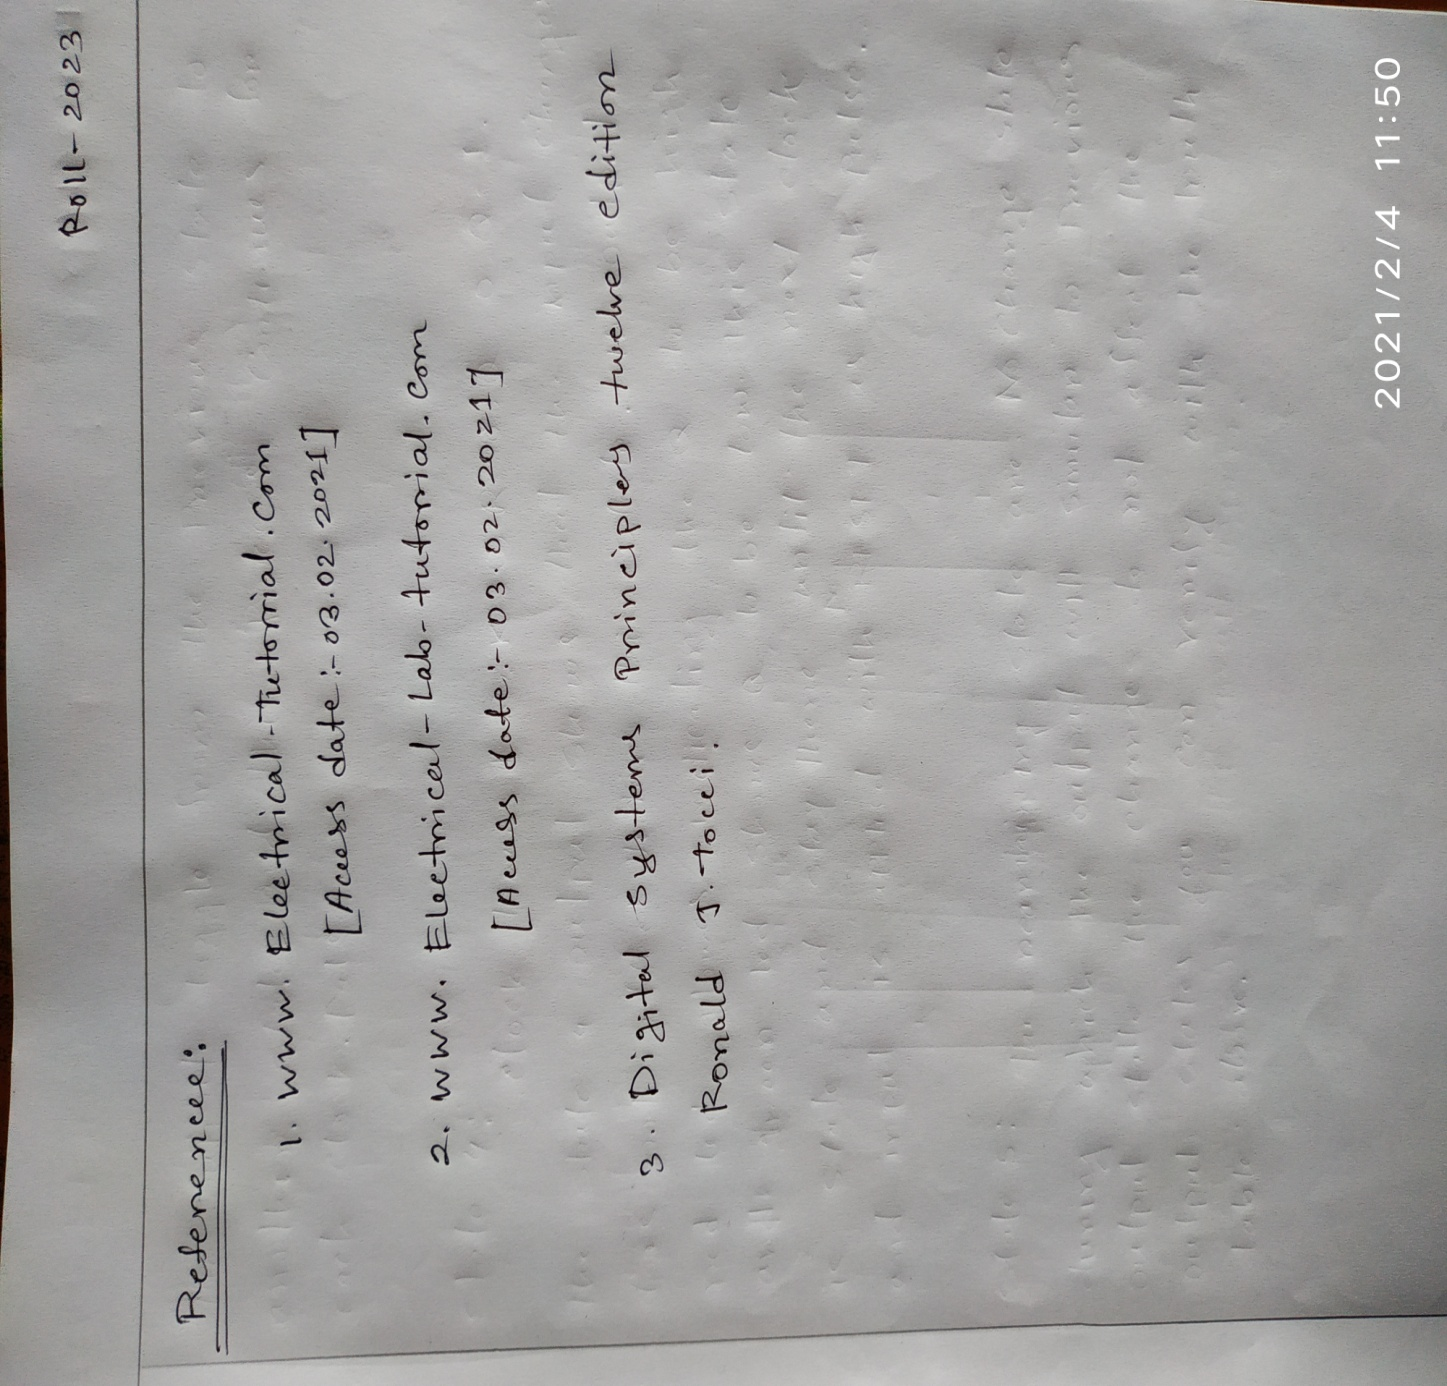 Roll-2023
Referencee:
1. www. Electrical-Tutorial.com
[Access date:- 03.02.2021]
2. www. Electrical-Lab-tutorial.com
[Access date:- 03.02.2021]
3. Digital Systems Principles twelve edition
Ronald J. tocci.
2021/2/4 11:50